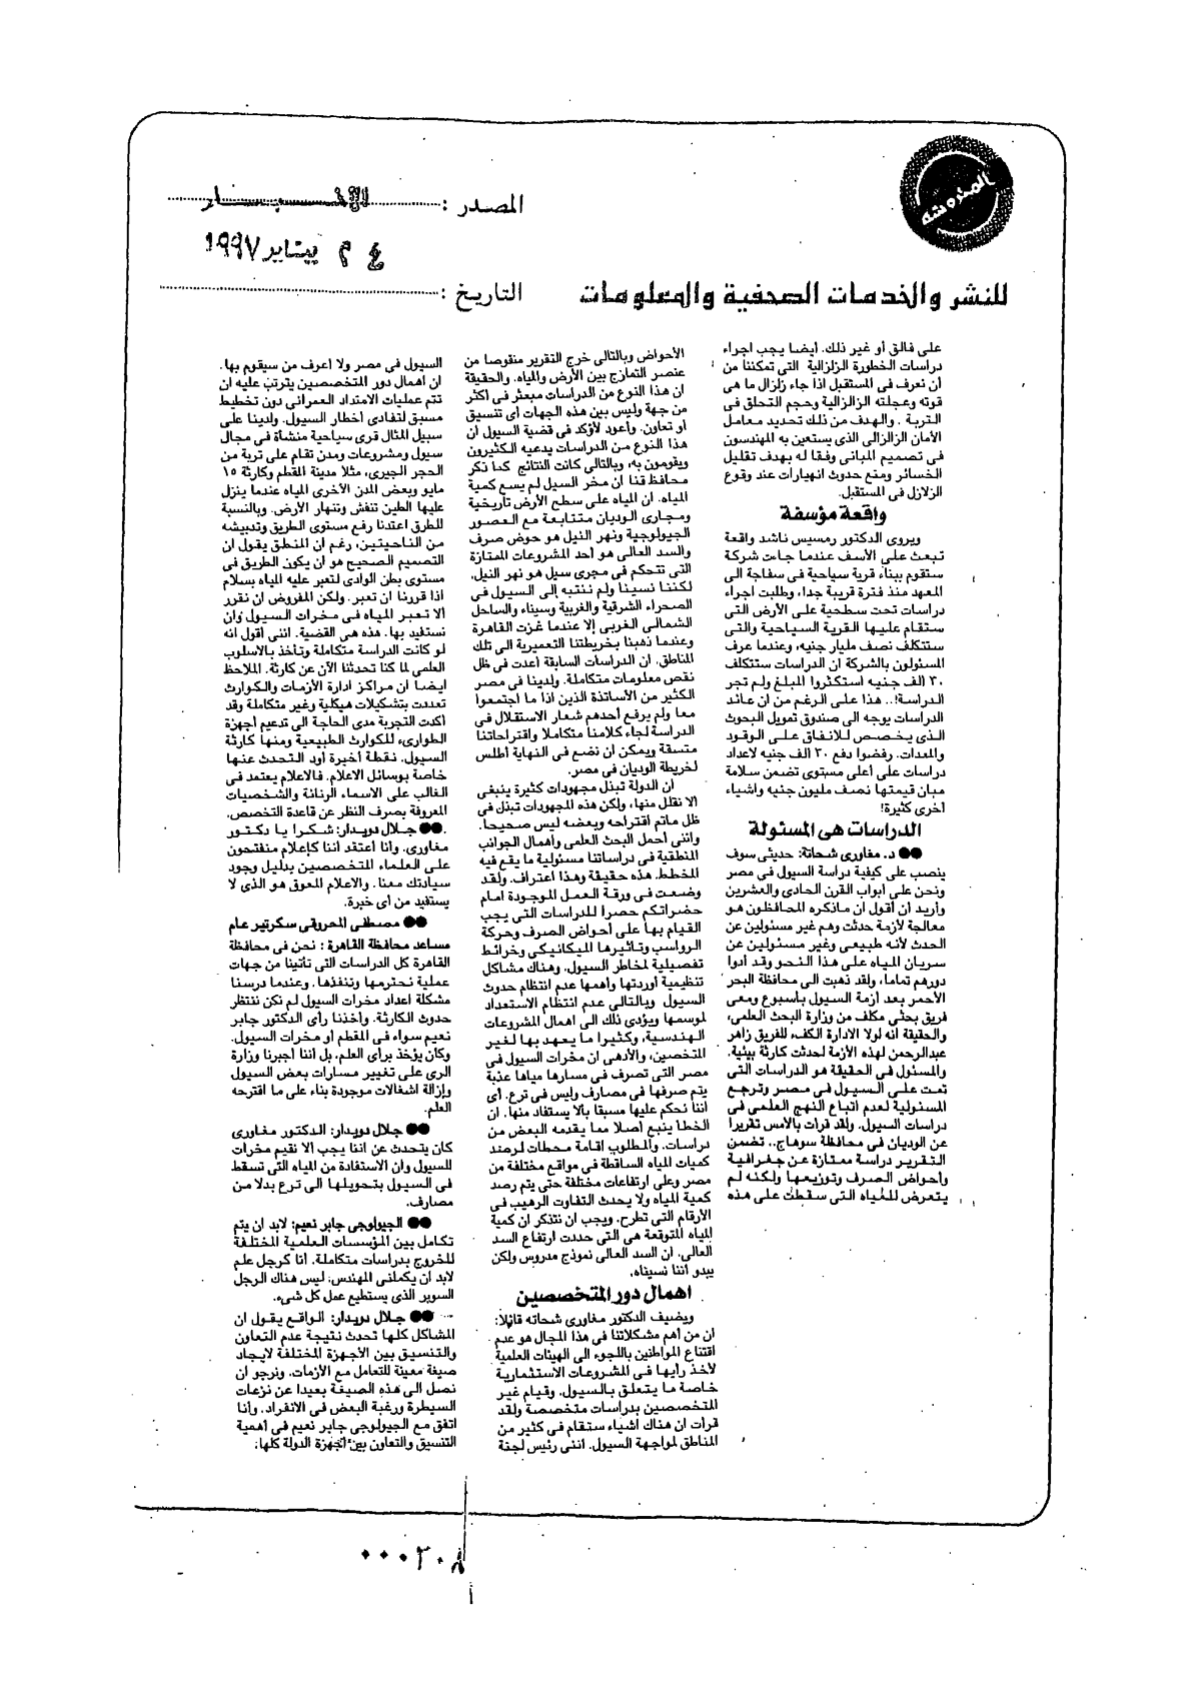 المحروسة
المصدر : الأخبار
٢٤ يناير ١٩٩٧
للنشر والخدمات الصحفية والمعلومات
التاريخ :
على فالق أو غير ذلك. أيضا يجب اجراء
دراسات الخطورة الزلزالية التى تمكننا من
أن نعرف فى المستقبل اذا جاء زلزال ما هى
قوته وعجلته الزلزالية وحجم التحلق فى
التربة . والهدف من ذلك تحديد معامل
الأمان الزلزالى الذى يستعين به المهندسون
فى تصميم المبانى وفقا له بهدف تقليل
الخسائر ومنع حدوث انهيارات عند وقوع
الزلازل فى المستقبل.
واقعة مؤسفة
ويروى الدكتور رمسيس ناشد واقعة
تبعث على الأسف عندما جاءت شركة
ستقوم ببناء قرية سياحية فى سفاجة الى
المعهد منذ فترة قريبة جدا، وطلبت اجراء
دراسات تحت سطحية على الأرض التى
ستقام عليها القرية السياحية والتى
ستتكلف نصف مليار جنيه، وعندما عرف
المسئولون بالشركة ان الدراسات ستتكلف
٣٠ الف جنيه استكثروا المبلغ ولم تجر
الدراسة!.. هذا على الرغم من ان عائد
الدراسات يوجه الى صندوق تمويل البحوث
الذى يخصص للانفاق على الوقود
والمعدات. رفضوا دفع ٣٠ الف جنيه لاعداد
دراسات على أعلى مستوى تضمن سلامة
مبان قيمتها نصف مليون جنيه واشياء
أخرى كثيرة!
الدراسات هى المسئولة
●● د. مغاورى شحاتة: حديثى سوف
ينصب على كيفية دراسة السيول فى مصر
ونحن على ابواب القرن الحادى والعشرين
وأريد أن أقول ان ماذكره المحافظون هو
معالجة لأزمة حدثت وهم غير مسئولين عن
الحدث لأنه طبيعى وغير مسئولين عن
سريان المياه على هذا النحو وقد أدوا
دورهم تماما، ولقد ذهبت الى محافظة البحر
الأحمر بعد أزمة السيول بأسبوع ومعى
فريق بحثى مكلف من وزارة البحث العلمى،
والحقيقة انه لولا الادارة الكفء للفريق زاهر
عبدالرحمن لهذه الأزمة لحدثت كارثة بيئية.
والمسئول فى الحقيقة هو الدراسات التى
تمت على السيول فى مصر وترجع
المسئولية لعدم اتباع النهج العلمى فى
دراسات السيول. ولقد قرأت بالأمس تقريرا
عن الوديان فى محافظة سوهاج.. تضمن
التقرير دراسة ممتازة عن جغرافية
وأحواض الصرف وتوزيعها ولكنه لم
يتعرض للمياه التى سقطت على هذه
الأحواض وبالتالى خرج التقرير منقوصا من
عنصر التمازج بين الأرض والمياه. والحقيقة
ان هذا النوع من الدراسات مبعثر فى اكثر
من جهة وليس بين هذه الجهات أى تنسيق
او تعاون. وأعود لأؤكد فى قضية السيول أن
هذا النوع من الدراسات يدعيه الكثيرون
ويقومون به، وبالتالى كانت النتائج كما ذكر
محافظ قنا ان مخر السيل لم يسع كمية
المياه. ان المياه على سطح الأرض تاريخية
ومجارى الوديان متتابعة مع العصور
الجيولوجية ونهر النيل هو حوض صرف
والسد العالى هو أحد المشروعات الممتازة
التى تتحكم فى مجرى سيل هو نهر النيل.
لكننا نسينا ولم ننتبه إلى السيول فى
الصحراء الشرقية والغربية وسيناء والساحل
الشمالى الغربى إلا عندما غزت القاهرة
وعندما ذهبنا بخريطتنا التعميرية الى تلك
المناطق. ان الدراسات السابقة أعدت فى ظل
نقص معلومات متكاملة. ولدينا فى مصر
الكثير من الأساتذة الذين اذا ما اجتمعوا
معا ولم يرفع أحدهم شعار الاستقلال فى
الدراسة لجاء كلامنا متكاملا واقتراحاتنا
متسقة ويمكن ان نضع فى النهاية أطلس
لخريطة الوديان فى مصر.
ان الدولة تبذل مجهودات كثيرة ينبغى
الا نقلل منها، ولكن هذه المجهودات تبذل فى
ظل ماتم اقتراحه وبعضه ليس صحيحا.
واننى أحمل البحث العلمى وأهمال الجوانب
المنطقية فى دراساتنا مسئولية ما يقع فيه
المخطط. هذه حقيقة وهذا اعتراف. ولقد
وضعت فى ورقة العمل الموجودة امام
حضراتكم حصرا للدراسات التى يجب
القيام بها على أحواض الصرف وحركة
الرواسب وتاثيرها الميكانيكى وخرائط
تفصيلية لمخاطر السيول. وهناك مشاكل
تنظيمية أوردتها وأهمها عدم انتظام حدوث
السيول وبالتالى عدم انتظام الاستعداد
لموسمها ويؤدى ذلك الى اهمال المشروعات
الهندسية، وكثيرا ما يعهد بها لغير
المتخصين، والأدهى ان مخرات السيول فى
مصر التى تصرف فى مسارها مياها عذبة
يتم صرفها فى مصارف وليس فى ترع. أى
أننا نحكم عليها مسبقا بألا يستفاد منها. ان
الخطأ ينبع أصلا مما يقدمه البعض من
دراسات. والمطلوب اقامة محطات لرصد
كميات المياه الساقطة فى مواقع مختلفة من
مصر وعلى ارتفاعات مختلفة حتى يتم رصد
كمية المياه ولا يحدث التفاوت الرهيب فى
الأرقام التى تطرح. ويجب ان نتذكر ان كمية
المياه المتوقعة هى التى حددت ارتفاع السد
العالى. ان السد العالى نموذج مدروس ولكن
يبدو أننا نسيناه.
اهمال دور المتخصصين
ويضيف الدكتور مغاورى شحاته قائلا:
ان من أهم مشكلاتنا فى هذا المجال هو عدم
اقتناع المواطنين باللجوء الى الهيئات العلمية
لأخذ رأيها فى المشروعات الاستثمارية
خاصة ما يتعلق بالسيول. وقيام غير
المتخصصين بدراسات متخصصة ولقد
قرأت ان هناك اشياء ستقام فى كثير من
المناطق لمواجهة السيول. اننى رئيس لجنة
السيول فى مصر ولا اعرف من سيقوم بها.
ان اهمال دور المتخصصين يترتب عليه ان
تتم عمليات الامتداد العمرانى دون تخطيط
مسبق لتفادى أخطار السيول. ولدينا على
سبيل المثال قرى سياحية منشأة فى مجال
سيول ومشروعات ومدن تقام على تربة من
الحجر الجيرى، مثلا مدينة المقطم وكارثة ١٥
مايو وبعض المدن الأخرى المياه عندما ينزل
عليها الطين تنفش وتنهار الأرض. وبالنسبة
للطرق اعتدنا رفع مستوى الطريق وتدبيشه
من الناحيتين، رغم ان المنطق يقول ان
التصميم الصحيح هو ان يكون الطريق فى
مستوى بطن الوادى لتعبر عليه المياه بسلام
اذا قررنا ان تعبر. ولكن المفروض ان نقرر
الا تعبر المياه فى مخرات السيول وأن
نستفيد بها. هذه هى القضية. اننى أقول انه
لو كانت الدراسة متكاملة وتأخذ بالاسلوب
العلمى لما كنا تحدثنا الآن عن كارثة. الملاحظ
ايضا ان مراكز ادارة الأزمات والكوارث
تعددت بتشكيلات هيكلية وغير متكاملة وقد
أكدت التجربة مدى الحاجة الى تدعيم أجهزة
الطوارىء للكوارث الطبيعية ومنها كارثة
السيول. نقطة أخيرة أود التحدث عنها
خاصة بوسائل الاعلام. فالاعلام يعتمد فى
الغالب على الاسماء الرنانة والشخصيات
المعروفة بصرف النظر عن قاعدة التخصص.
●● جلال دويدار: شكرا يا دكتور
مغاورى. وانا أعتقد أننا كإعلام منفتحون
على العلماء المتخصصين بدليل وجود
سيادتك معنا. والاعلام المعوق هو الذى لا
يستفيد من أى خبرة.
●● مصطفى المحروقى سكرتير عام
مساعد محافظة القاهرة : نحن فى محافظة
القاهرة كل الدراسات التى تأتينا من جهات
عملية نحترمها وننفذها. وعندما درسنا
مشكلة اعداد مخرات السيول لم نكن ننتظر
حدوث الكارثة. وأخذنا رأى الدكتور جابر
نعيم سواء فى المقطم او مخرات السيول.
وكان يؤخذ برأى العلم، بل اننا اجبرنا وزارة
الرى على تغيير مسارات بعض السيول
وإزالة اشغالات موجودة بناء على ما اقترحه
العلم.
●● جلال دويدار: الدكتور مغاورى
كان يتحدث عن اننا يجب الا نقيم مخرات
للسيول وان الاستفادة من المياه التى تسقط
فى السيول بتحويلها الى ترع بدلا من
مصارف.
●● الجيولوجى جابر نعيم: لابد ان يتم
تكامل بين المؤسسات العلمية المختلفة
للخروج بدراسات متكاملة. انا كرجل علم
لابد أن يكملنى المهندس؛ ليس هناك الرجل
السوبر الذى يستطيع عمل كل شىء.
●● جلال دويدار: الواقع يقول ان
المشاكل كلها تحدث نتيجة عدم التعاون
والتنسيق بين الأجهزة المختلفة لايجاد
صيغة معينة للتعامل مع الأزمات. ونرجو ان
نصل الى هذه الصيغة بعيدا عن نزعات
السيطرة ورغبة البعض فى الانفراد. وأنا
اتفق مع الجيولوجى جابر نعيم فى أهمية
التنسيق والتعاون بين أجهزة الدولة كلها.